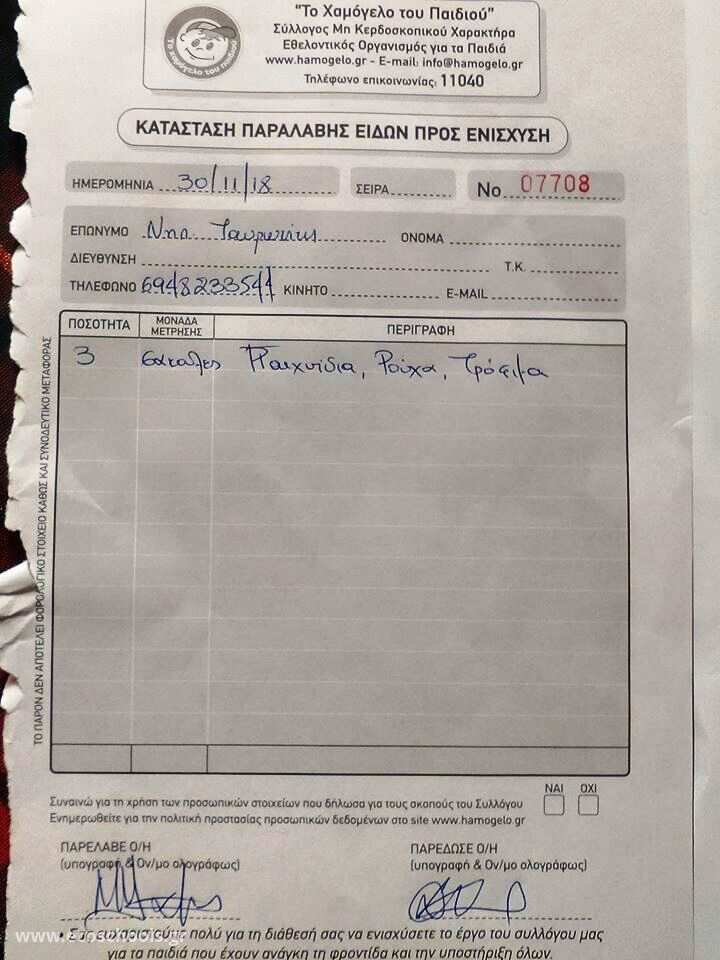 Το χαμόγελο του παιδιού
"Το Χαμόγελο του Παιδιού"
Σύλλογος Μη Κερδοσκοπικού Χαρακτήρα
Εθελοντικός Οργανισμός για τα Παιδιά
www.hamogelo.gr - E-mail: info@hamogelo.gr
Τηλέφωνο επικοινωνίας: 11040
ΚΑΤΑΣΤΑΣΗ ΠΑΡΑΛΑΒΗΣ ΕΙΔΩΝ ΠΡΟΣ ΕΝΙΣΧΥΣΗ
ΗΜΕΡΟΜΗΝΙΑ 30/11/18 ΣΕΙΡΑ No 07708
ΕΠΩΝΥΜΟ ΟΝΟΜΑ
ΔΙΕΥΘΥΝΣΗ Τ.Κ.
ΤΗΛΕΦΩΝΟ 6948233544 ΚΙΝΗΤΟ E-MAIL
ΠΟΣΟΤΗΤΑ ΜΟΝΑΔΑ ΜΕΤΡΗΣΗΣ ΠΕΡΙΓΡΑΦΗ
3 σάκουλες Παιχνίδια, Ρούχα, Τρόφιμα
ΤΟ ΠΑΡΟΝ ΔΕΝ ΑΠΟΤΕΛΕΙ ΦΟΡΟΛΟΓΙΚΟ ΣΤΟΙΧΕΙΟ ΚΑΘΩΣ ΚΑΙ ΣΥΝΟΔΕΥΤΙΚΟ ΜΕΤΑΦΟΡΑΣ
ΝΑΙ ΟΧΙ
Συναινώ για τη χρήση των προσωπικών στοιχείων που δήλωσα για τους σκοπούς του Συλλόγου
Ενημερωθείτε για την πολιτική προστασίας προσωπικών δεδομένων στο site www.hamogelo.gr
ΠΑΡΕΛΑΒΕ Ο/Η ΠΑΡΕΔΩΣΕ Ο/Η
(υπογραφή & Ον/μο ολογράφως) (υπογραφή & Ον/μο ολογράφως)
• Σας ευχαριστούμε πολύ για τη διάθεσή σας να ενισχύσετε το έργο του συλλόγου μας
για τα παιδιά που έχουν ανάγκη τη φροντίδα και την υποστήριξη όλων.
www.ecoschools.gr